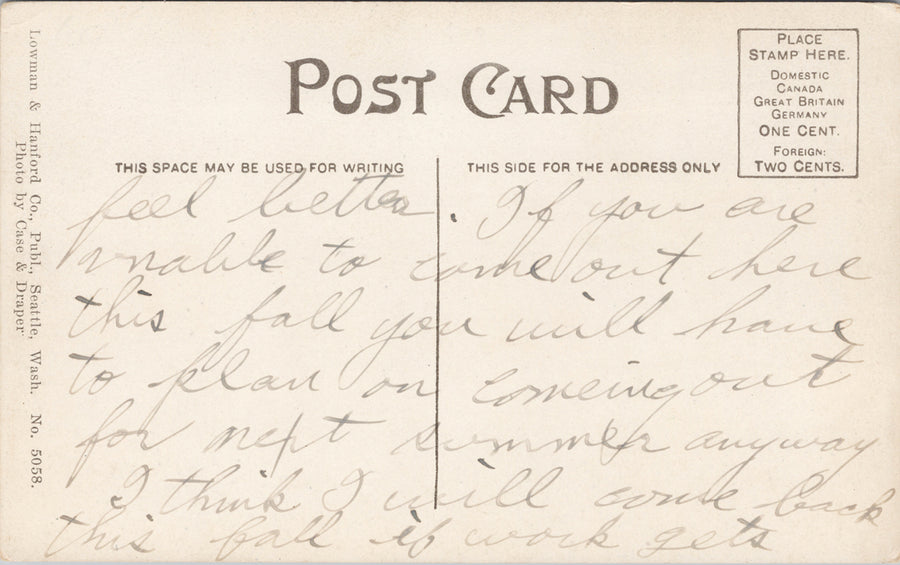 POST CARD
PLACE
STAMP HERE.
DOMESTIC
CANADA
GREAT BRITAIN
GERMANY
ONE CENT.
FOREIGN:
TWO CENTS.
THIS SPACE MAY BE USED FOR WRITING
THIS SIDE FOR THE ADDRESS ONLY
feel better. If you are
unable to come out here
this fall you will have
to plan on comeing out
for next summer anyway
I think I will come back
this fall if work gets
Lowman & Hanford Co., Publ., Seattle, Wash. No. 5058.
Photo by Case & Draper